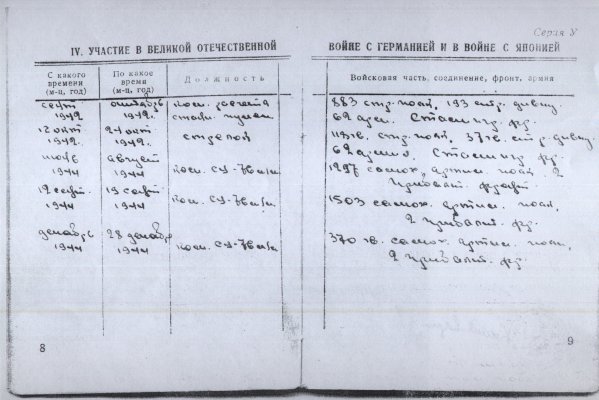 Серия У
IV. УЧАСТИЕ В ВЕЛИКОЙ ОТЕЧЕСТВЕННОЙ
ВОЙНЕ С ГЕРМАНИЕЙ И В ВОЙНЕ С ЯПОНИЕЙ
С какого времени (м-ц, год)
По какое время (м-ц, год)
Должность
Войсковая часть, соединение, фронт, армия
сент 1942 октябрь 1942. ком. расчета стан. пулем
883 стр. полк, 193 стр. дивиз.
62 арм. Сталингр. фр.
12 окт 1942. 24 окт 1942. стрелок
стр. полк, 37 гв. стр. дивиз.
62 армия, Сталингр. фр.
1944 август 1944 ком. СУ-
1297 самох. артил. полк 2
Прибалт. фронт
12 сент. 1944 19 сент. 1944 ком. СУ-
1503 самох. артил. полк,
2 прибалт. фр.
декабрь 1944 28 декабрь 1944 ком. СУ-
370 гв. самох. артил. полк,
2 прибалт. фр.
8
9